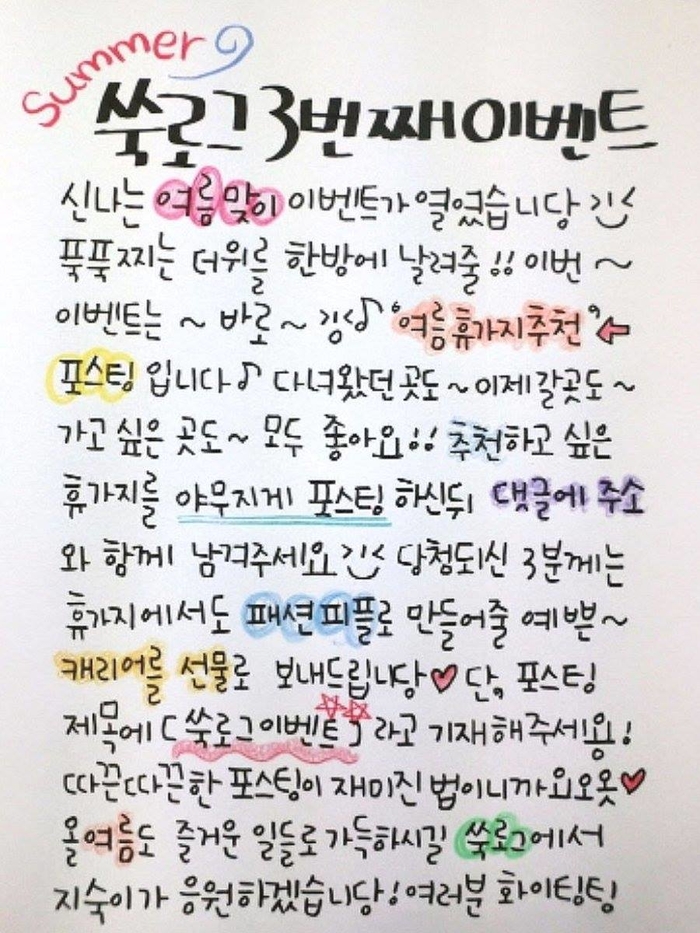 Summer
쑥로그 3번째 이벤트
신나는 여름맞이 이벤트가 열였습니당 >;<
푹푹찌는 더위를 한방에 날려줄!! 이번 ~
이벤트는 ~ 바로 ~ 킹<♪ "여름휴가지추천" ⇐
포스팅 입니다♪ 다녀왔던 곳도 ~ 이제갈곳도 ~
가고 싶은 곳도 ~ 모두 좋아요!! 추천하고 싶은
휴가지를 야무지게 포스팅 하신뒤 댓글에 주소
와 함께 남겨주세요 >;< 당청되신 3분께는
휴가지에서도 패션피플로 만들어줄 예쁜 ~
캐리어를 선물로 보내드립니당♥ 단, 포스팅
제목에 [쑥로그이벤트] 라고 기재해주세용!
따끈따끈한 포스팅이 재미진 법이니까요오옷♥
올여름도 즐거운 일들로 가득하시길 쑥로그에서
지숙이가 응원하겠습니당! 여러분 화이팅팅